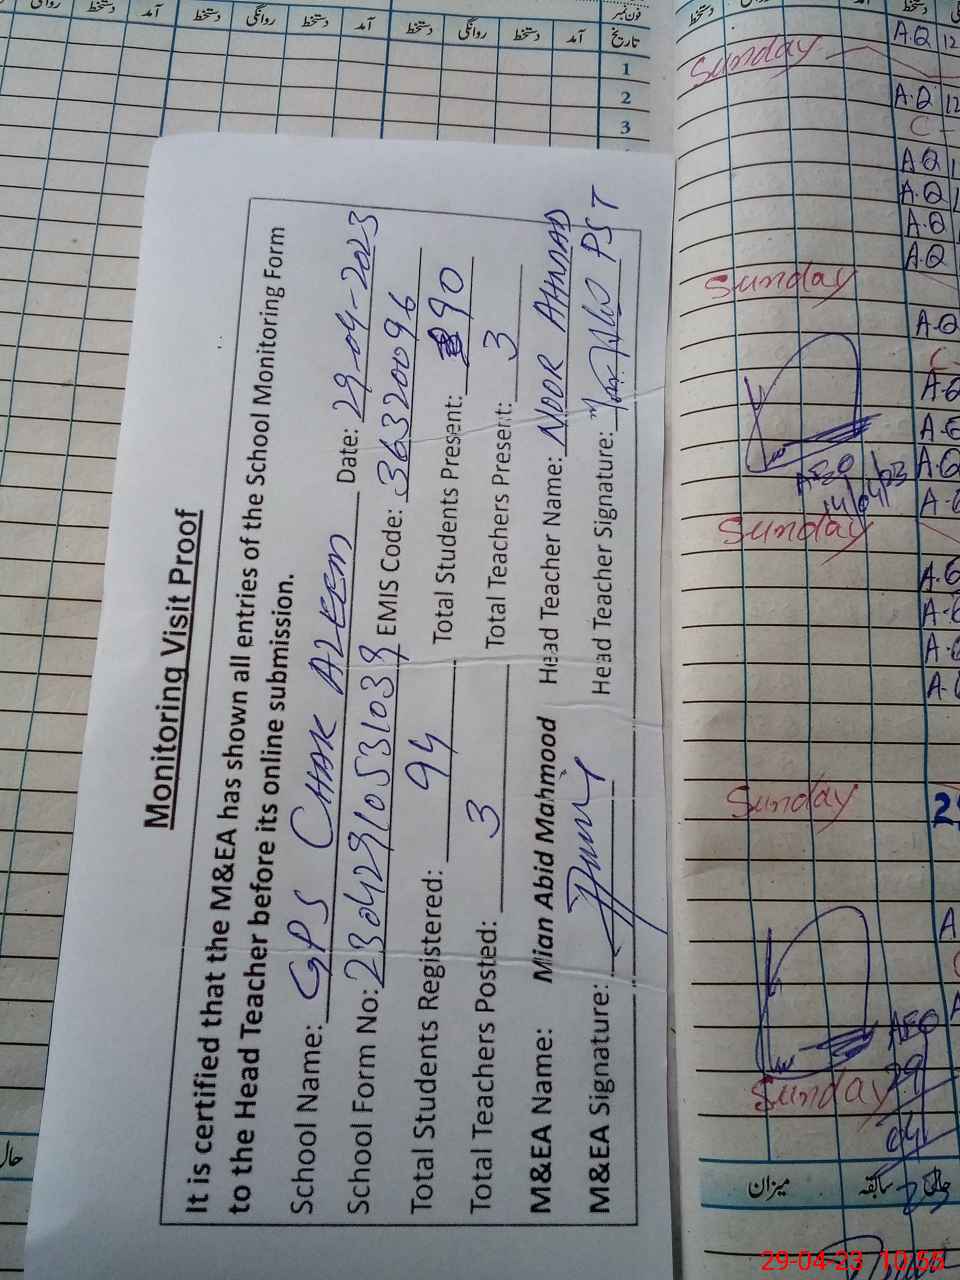 Monitoring Visit Proof
It is certified that the M&EA has shown all entries of the School Monitoring Form
to the Head Teacher before its online submission.
School Name: GPS CHAK AZEEM Date: 29-04-2023
School Form No: 230429105331039 EMIS Code: 36320096
Total Students Registered: 94 Total Students Present: 90
Total Teachers Posted: 3 Total Teachers Present: 3
M&EA Name: Mian Abid Mahmood Head Teacher Name: NOOR AHMAD
M&EA Signature: Head Teacher Signature: PST
فون نمبر
تاریخ آمد دستخط روانگی دستخط آمد دستخط روانگی دستخط
1
2
3
حال
دستخط
A.Q 12
Sunday
A.Q 12
C -
A.Q
A.Q
A.Q
A.Q
Sunday
A.Q
C
A.Q
A.Q
A.Q
AEO
14/04/23
Sunday
A.Q
A.Q
A.Q
A.Q
Sunday
AEO
29
04
Sunday
میزان سابقہ حال
29-04-23 10:55